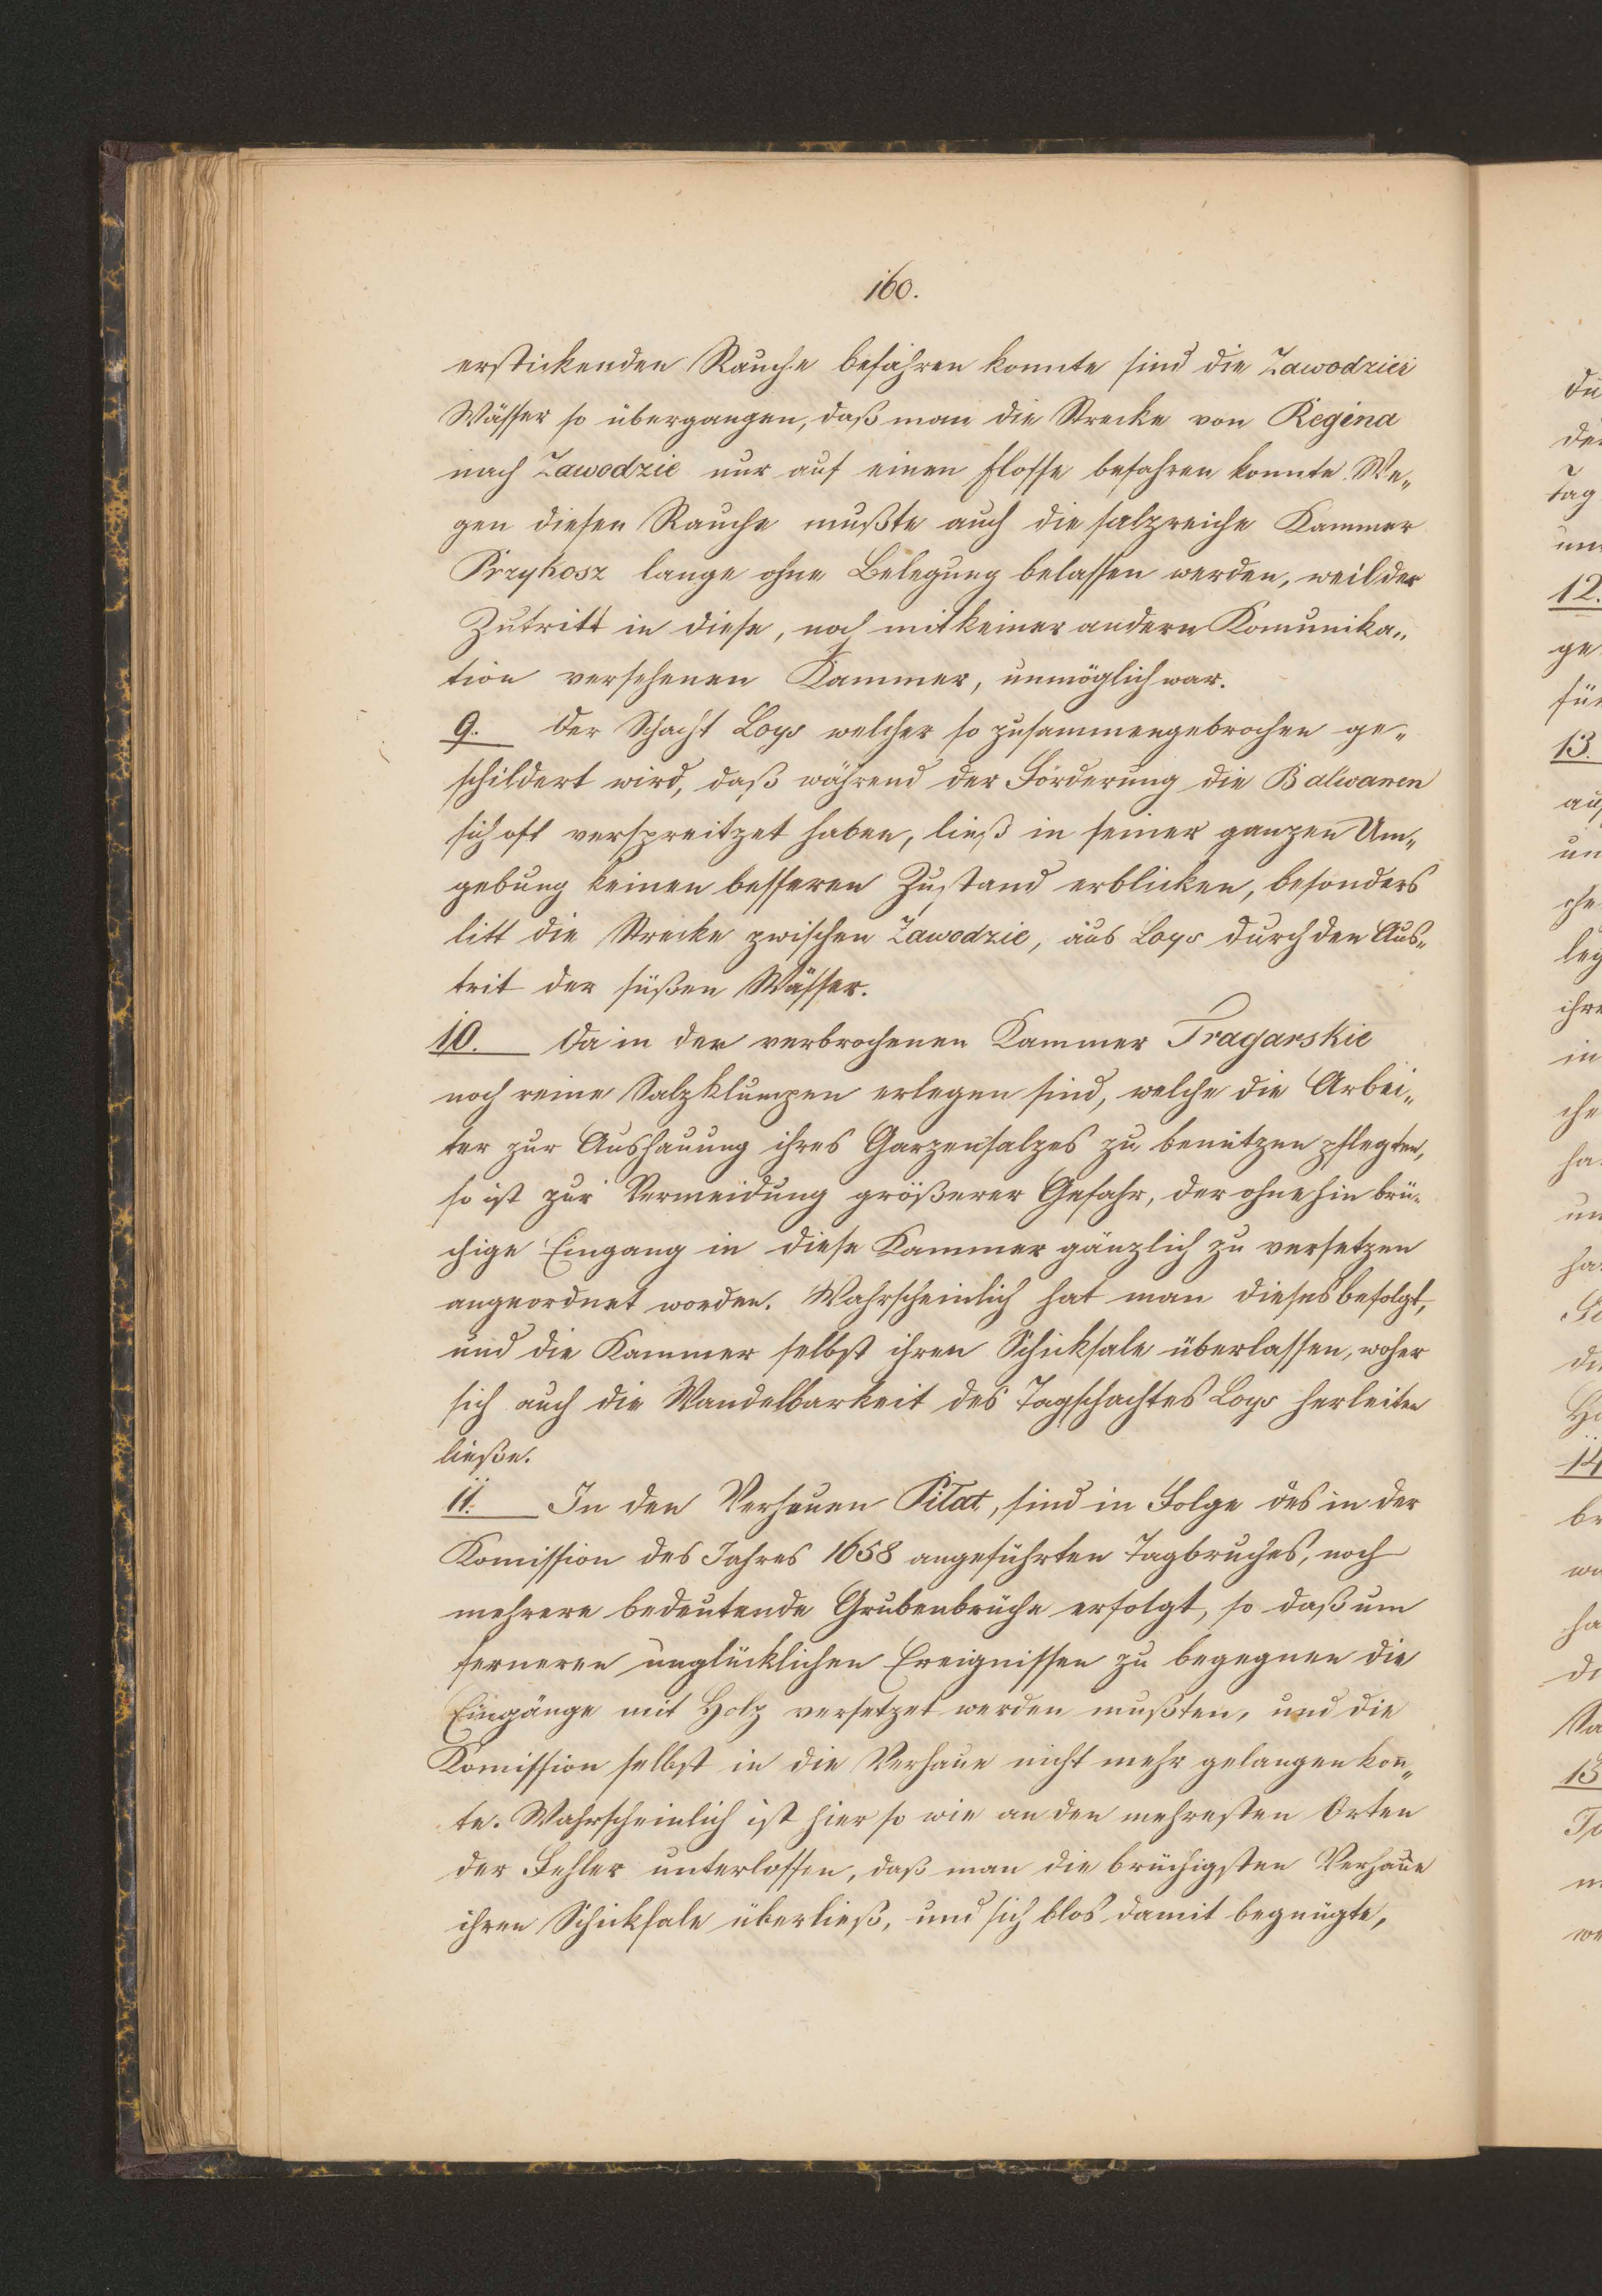 160.
erstickenden Rauche befahren konnte sind die Zawodzier
Wässer so übergangen, daß man die Strecke von Regina
nach Zawodzie nur auf einen Flosse befahren konnte. We„
gen diesen Rauche mußte auch die salzreiche Kammer
Przykosz lange ohne Belegung belassen werden, weil der
Zutritt in diese, noch mit keiner andern Komunika„
tion versehenen Kammer, unmöglich war.
9. Der Schacht Loys welcher so zusammengebrochen ge„
schildert wird, daß während der Förderung die Balwanen
sich oft verspreitzet haben, ließ in seiner ganzen Um„
gebung keinen besseren Zustand erblicken, besonders
litt die Strecke zwischen Zawodzie, aus Loys durch den Aus„
trit der süßen Wässer.
10. Da in der verbrochenen Kammer Tragarskie
noch reine Salzklumpen erlegen sind, welche die Arbei„
ter zur Aushauung ihres Garzensalzes zu benützen pflegten,
so ist zur Vermeidung größerer Gefahr, der ohnehin brü„
chige Eingang in diese Kammer gänzlich zu versetzen
angeordnet worden. Wahrscheinlich hat man dieses befolgt,
und die Kammer selbst ihren Schicksale überlassen, woher
sich auch die Wandelbarkeit des Tagschachtes Loys herleiten
ließe.
11. In den Verhauen Pilat, sind in Folge des in der
Komission des Jahres 1658 angeführten Tagbruches, noch
mehrere bedeutende Grubenbrüche erfolgt, so daß um
ferneren unglücklichen Ereignissen zu begegnen die
Eingänge mit Holz versetzet werden mußten, und die
Komission selbst in die Verhaue nicht mehr gelangen kon„
te. Wahrscheinlich ist hier so wie an den mehresten Orten
der Fehler unterloffen, daß man die brüchigsten Verhaue
ihren Schicksale überließ, und sich blos damit begnügte,